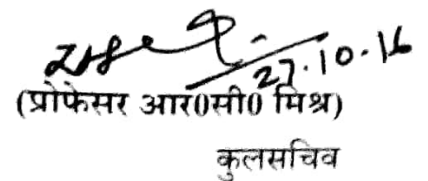 27.10.16
(प्रोफेसर आर0सी0 मिश्र)
कुलसचिव